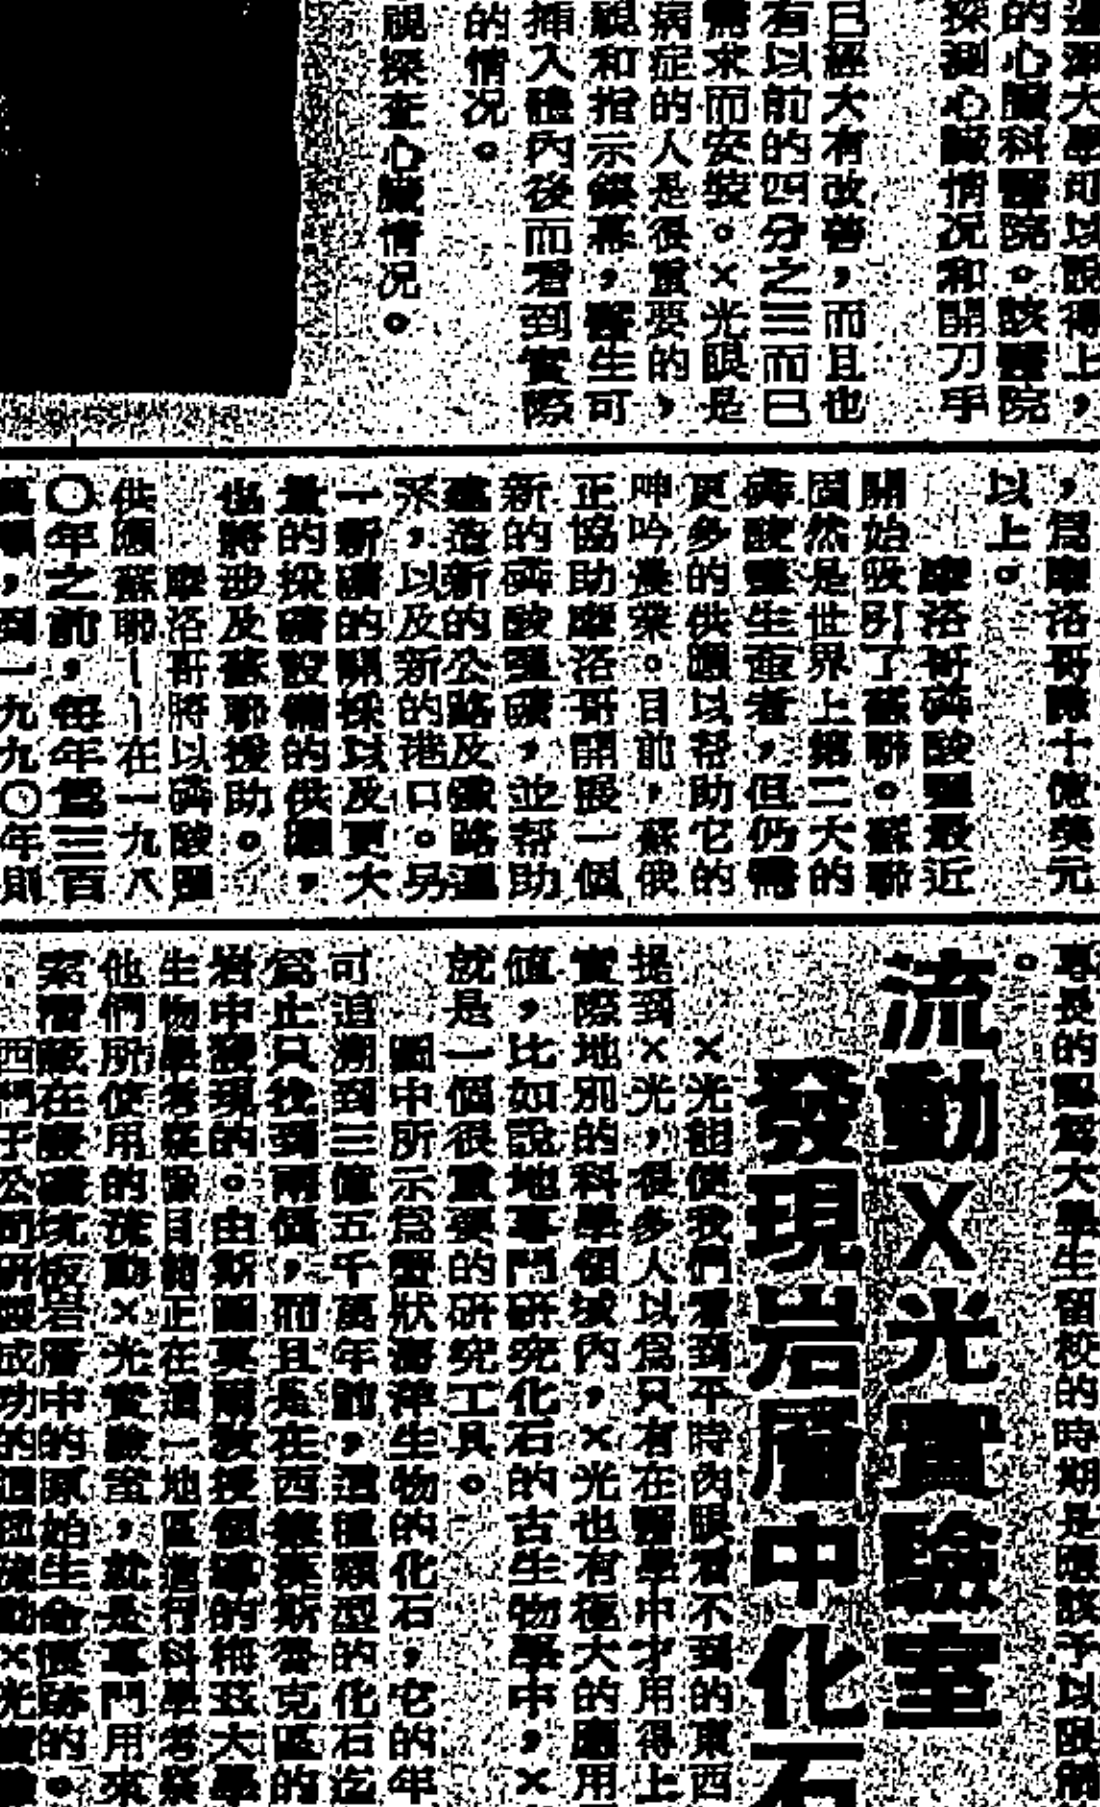 進深大學可以說得上，
的心臟科醫院。該醫院
探測心臟情況和開刀手
已經大有改善，而且也
有以前的四分之三而已
需求而安裝。X光眼是
病症的人是很重要的，
視和指示銀幕，醫生可
插入體內後而看到實際
的情况。
視探查心臟情况。
，爲摩洛哥
十億美元
以上。
摩洛哥磷酸鹽最近
開始吸引了蘇聯。蘇聯
固然是世界上第二大的
磷酸鹽生產者，但仍需
更多的供應以帮助它的
呻吟農業。目前，蘇俄
正協助摩洛哥開設一個
新的磷酸鹽礦，並帮助
建造新的公路及鐵路運
系，以及新的港口。另
一新礦的開採以及更大
量的採礦設備的供應，
也將涉及蘇聯援助。
摩洛哥將以磷酸鹽
供應蘇聯——在一九八
〇年之前，每年爲三百
萬噸，到一九九〇年則
專長的
大學生留校的時期是應該予以限制
。
流動X光實驗室
發現岩層中化石
X光能使我們看到平時肉眼看不到的東西
提到X光，很多人以爲只有在醫學中才用得上
實際地別的科學領域內，X光也有極大的應用
值，比如說地專門研究化石的古生物學中，X
就是一個很重要的研究工具。
圖中所示爲蟹狀海洋生物的化石，它的年
可追溯到三億五千萬年前，這種類型的化石迄
爲止只找到兩個，而且是在西德萊斯魯克區的
岩中發現的。由斯圖莫爾教授領導的梅茲大學
生物學考察隊目前正在這一地區進行科學考察
他們所使用的流動X光實驗室，就是專門用來
索隱蔽在礦坑板岩層中的原始生命痕跡的。
西門子公司研製成功的這種流動X光實驗